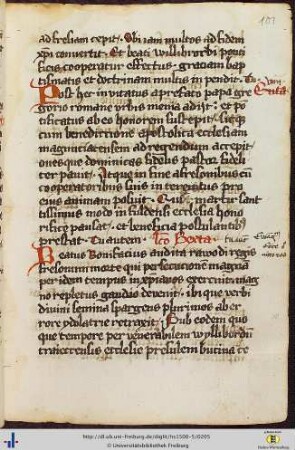 101
ad fresiam cepit. Ubi iam multos ad fidem
xpi convertit. Et beati willibrordi ponti
ficis cooperator effectus. gratiam bap
tismatis et doctrinam multis inpendit. Tu
Post hec invitatus a prefato papa gre
gorio romane urbis menia adijt: et po
tificatus ab eo honorem suscepit. sicq
cum benedictione apostolica ecclesiam
magunciacensem ad regendum accepit
ovesque dominicas fidelis pastor fideli
ter pavit. Atque in fine a fresonibus cu
cooperatoribus suis interemtus pro
eius animam posuit. martir sanc
tissimus modo in fuldensi ecclesia hono
rifice pausat. et beneficia postulantibus
prestat. Tu autem. Sexta
Beatus Bonifacius audita rawodi regis
fresonum morte qui persecucionem magnam
per idem tempus in xpianos exercuit mag
no repletus gaudio devenit. ibique verbi
divini semina spargens plurimos ab er
rore ydolatrie retraxit. Sub eodem quo
que tempore per venerabilem wyllibordum
traiecensis ecclesie presulem
http://dl.ub.uni-freiburg.de/diglit/hs1500-5/0205
© Universitätsbibliothek Freiburg